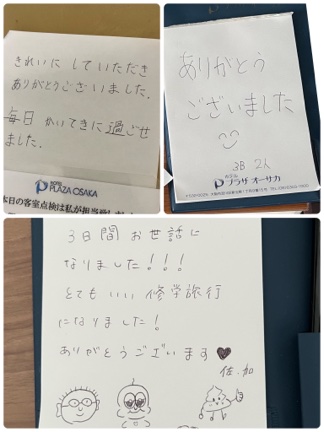 きれいに していただき
ありがとうございました。
毎日 かいてきに過ごせ
ました。
PLAZA OSAKA
本日の客室点検は私が担当致しました
ありがとう
ございました
3B 2人
プラザ オーサカ
3日間 お世話に
なりました!!!
とても いい 修学旅行
になりました!
ありがとうございます♥
佐.加